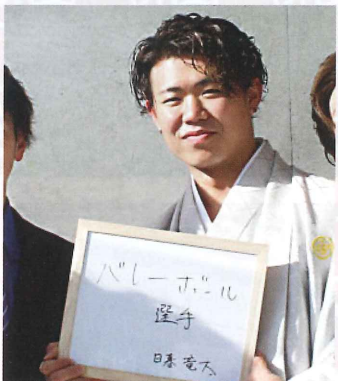 バレーボール
選手
日暮竜太